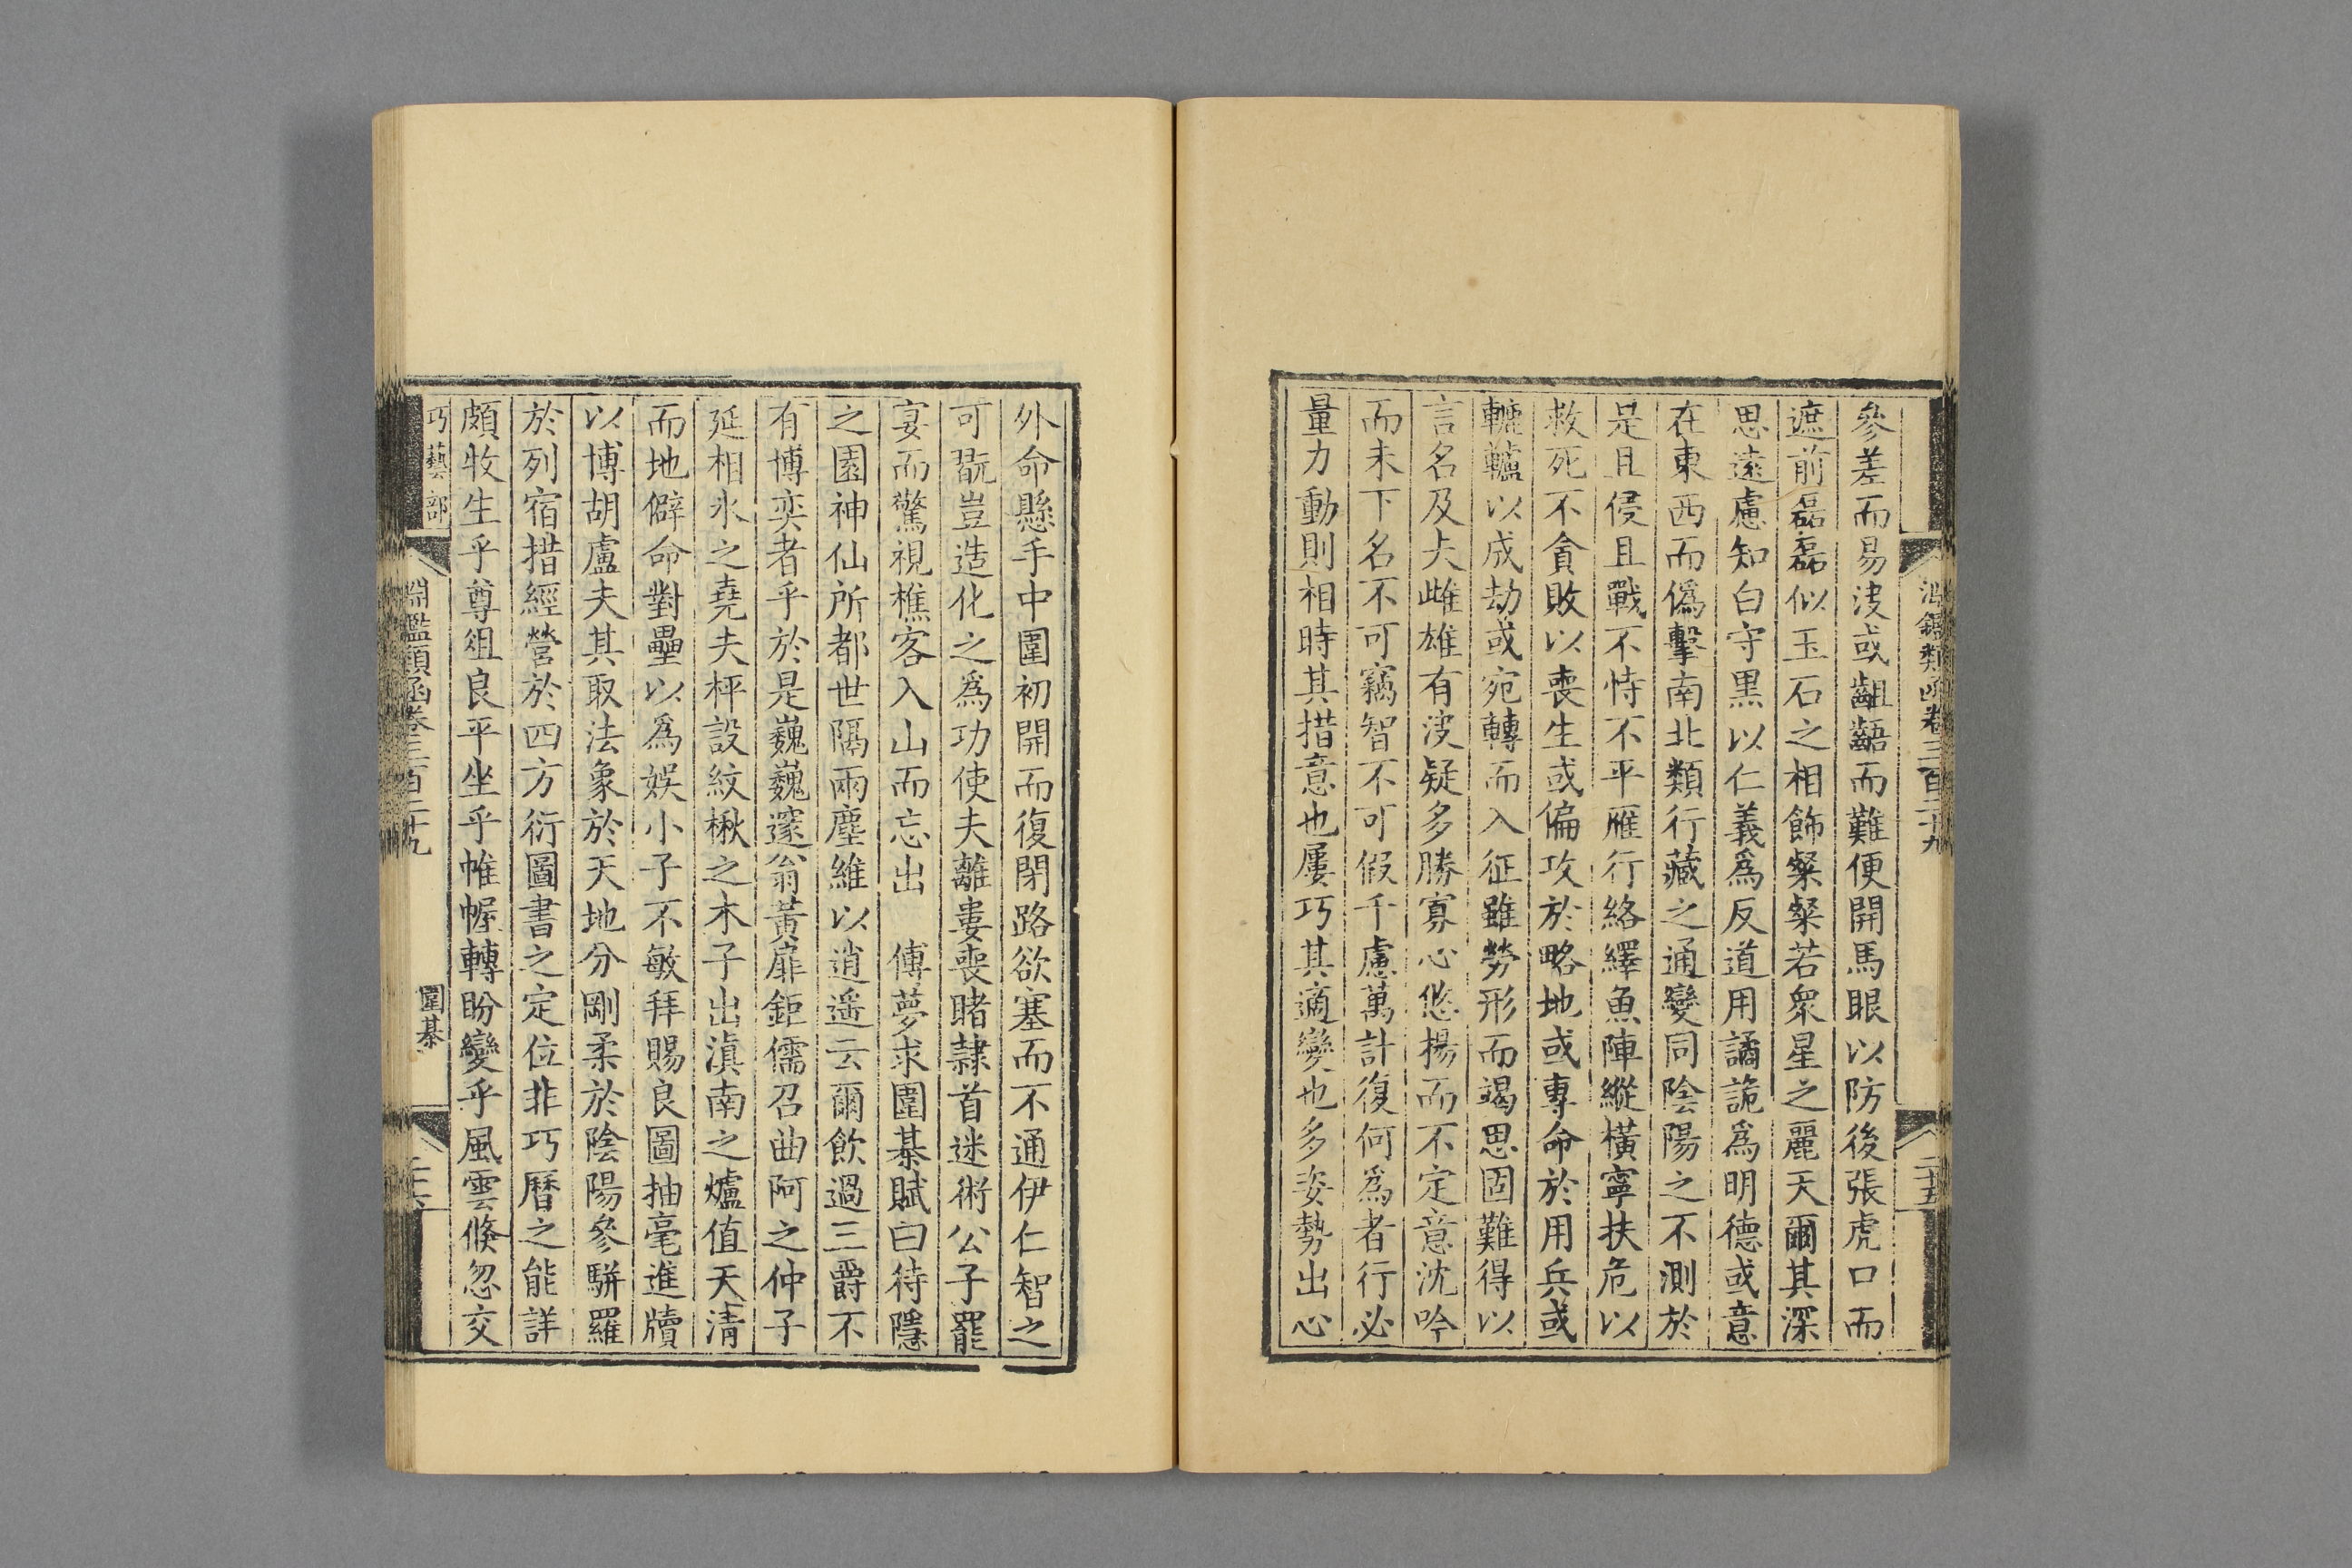 淵鑑類函卷三百二十九
二十五
參差而易波或齟齬而難便開馬眼以防後張虎口而
遮前磊磊似玉石之相飾粲粲若衆星之麗天爾其深
思遠慮知白守黑以仁義爲反道用譎詭爲明德或意
在東西而僞擊南北類行藏之通變同陰陽之不測於
是且侵且戰不恃不平雁行絡繹魚陣縱橫寧扶危以
救死不貪敗以喪生或偏攻於略地或專命於用兵或
轆轤以成劫或宛轉而入征雖勞形而竭思固難得以
言名及夫雌雄有波疑多勝寡心悠揚而不定意沈吟
而未下名不可竊智不可假千慮萬計復何爲者行必
量力動則相時其措意也屢巧其適變也多姿勢出心
外命懸手中圍初開而復閉路欲塞而不通伊仁智之
可翫豈造化之爲功使夫離婁喪睹隷首迷術公子罷
宴而驚視樵客入山而忘出　傅夢求圍棊賦曰待隱
之園神仙所都世隔兩塵維以逍遥云爾飲過三爵不
有博奕者乎於是巍巍邃翁黃扉鉅儒召曲阿之仲子
延相氷之堯夫枰設紋楸之木子出滇南之爐值天清
而地僻命對壘以爲娛小子不敏拜賜良圖抽毫進牘
以博胡盧夫其取法象於天地分剛柔於陰陽參駢羅
於列宿措經營於四方衍圖書之定位非巧曆之能詳
頗牧生乎尊俎良平坐乎帷幄轉盼變乎風雲倏忽交
巧藝部
淵鑑類函卷三百二十九
圍棊
二十六